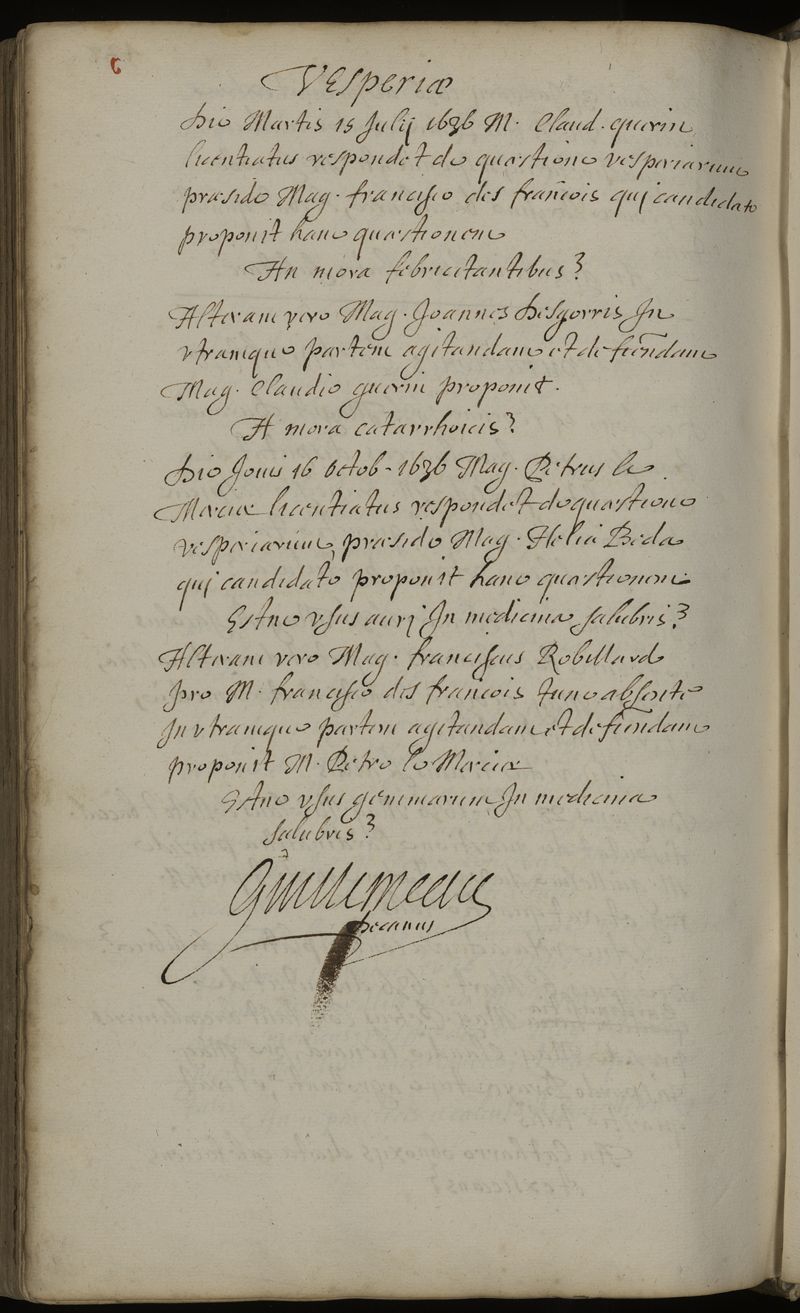 Vesperiæ
Die Martis 15 Julij 1636 M. Claud. guerin
licentiatus respondet de quæstione vesperiarum
præside Mag. francisco des franc̄ois quj candidato
proponit hanc quæstionem
An mora febricitantibus?
Alteram vero Mag. Joannes Desgorris In
vtramque partem agitandam et defendam
Mag. Claudio guerin proponit.
A mora catarrhoicis?
Die Jouis 16 Octob. 1636 Mag. Petrus le
Mercier licentiatus respondet de quæstione
vesperiarum, præside Mag. Helia Beda
quj candidato proponit hanc quæstionem
Estne vsus aurj In medicina salubris?
Alteram vero Mag. franciscus Robillard
pro M. francisco des francois tunc absente
In vtramque partem agitandam et defendam
proponit M. Petro le Mercier
Estne vsus gemmarum In medicina
salubris?
Guillemeau
Decanus